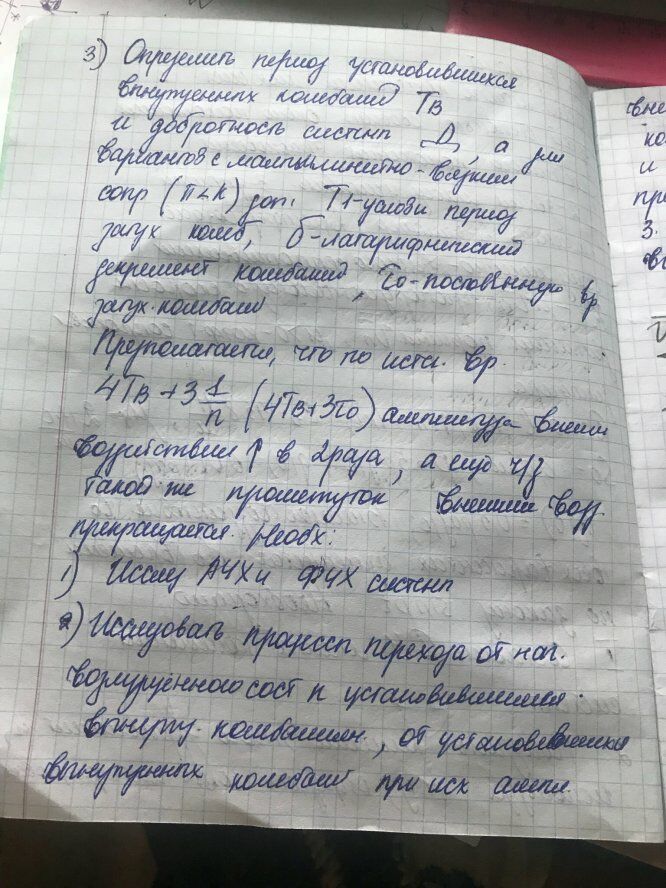 3) Определить период установившихся
вынужденных колебаний Tв
и добротность системы Д, а для
вариантов с малым линейно-вязким
сопр (n<k) доп. T1-условн период
затух колеб, δ-логарифмический
декремент колебаний, τ0-постоянную вр
затух. колебаний
Предполагается, что по истеч. вр.
4Tв+3 1/n (4Tв+3τ0) амплитуда внешн
воздействия ↑ в 2 раза, а ещё ч/з
такой же промежуток внешнее возд.
прекращается. Необх:
1) Исслед АЧХ и ФЧХ системы
2) Исследовать процессы перехода от нач.
возмущённого сост к установившимся
вынужд. колебаниям, от установившихся
вынужденных колебаний при исх ампл.
вне
и
пр
3.